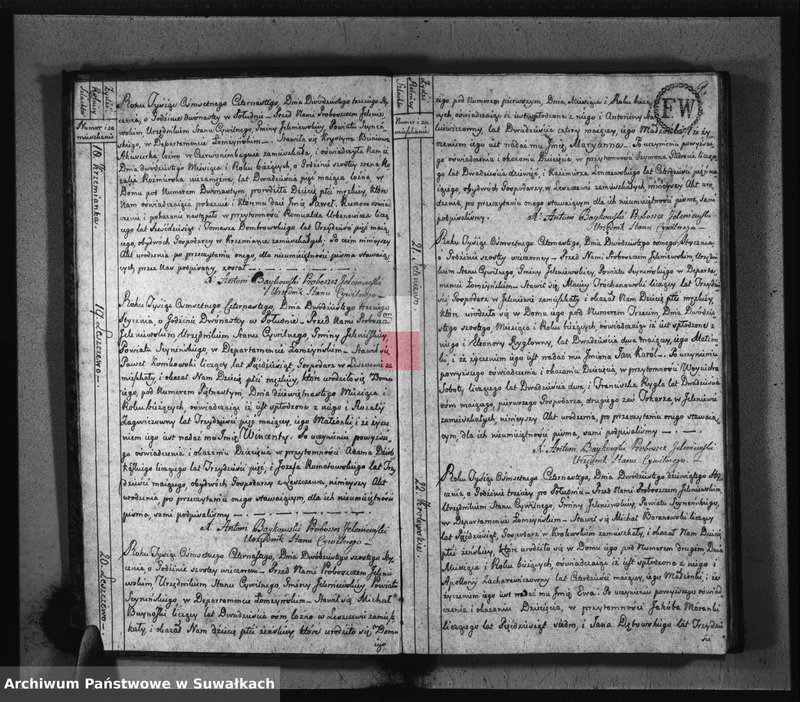 18. Krzemianka.
Roku Tysiąc Osmsetnego Czternastego, Dnia Dwudziestego trzeciego Sty-
cznia, o Godzinie dwunastej w Południe. Przed Nami Proboszczem Jelenie-
wskim, Urzędnikiem Stanu Cywilnego, Gminy Jeleniewskiej, Powiatu Seyneń-
skiego, w Departamencie Łomżyńskim. Stawiła się Krystyna
Akuszerka
Dnia dwudziestego Miesiąca i Roku bieżących, o Godzinie szóstej z rana
Domu pod Numerem Dwunastym, porodziła Dziecię płci męzkiej, które
Nam oświadczająca pokazuie i któremu daie Imię Paweł.
czenia i pokazania nastąpiło w przytomności Romualda Urbanowicza liczą-
cego lat Sześćdziesiąt i Tomasza Dombrowskiego lat Trzydzieści pięć maią-
cego, obydwóch Gospodarzy w Krzemiance zamieszkałych; Po czem ninieyszy
Akt urodzenia, po przeczytaniu onego, dla nieumieiętności pisma stawaią-
cych przez Nas podpisany został
X. Antoni Baykowski Proboszcz Jeleniewski
Urzędnik Stanu Cywilnego
19. Leszczewo.
Roku Tysiąc Osmsetnego Czternastego, Dnia Dwudziestego trzeciego
Stycznia, o Godzinie Dwunastej w Południe. Przed Nami Proboszczem
Jeleniewskim Urzędnikiem Stanu Cywilnego, Gminy Jeleniewskiej,
Powiatu Seyneńskiego, w Departamencie Łomżyńskim. Stawił się
Paweł liczący lat Gospodarz w Leszczewie za-
mieszkały, i okazał Nam Dziecię płci męzkiej, które urodziło się w Domu
iego, pod Numerem Piętnastym, Dnia dziewiętnastego Miesiąca i
Roku bieżących, oświadczaiąc iż iest spłodzone z niego i Rozalij
lat Trzydzieści pięć maiącey, iego Małżonki i że życze-
niem iego iest nadać mu Imię Wincenty. Po uczynieniu powyższe-
go oświadczenia i okazaniu Dziecięcia w przytomności Adama
liczącego lat Trzydzieści pięć, i Józefa lat Trzy-
dzieści maiącego, obydwóch Gospodarzy z Leszczewa, ninieyszy Akt
urodzenia, po przeczytaniu onego stawaiącym, dla ich nieumieiętności
pisma, sami podpisaliśmy
X. Antoni Baykowski Proboszcz Jeleniewski
Urzędnik Stanu Cywilnego
20. Leszczewo
Roku Tysiąc Osmsetnego Czternastego, Dnia Dwudziestego szóstego Sty-
cznia, o Godzinie szóstej wieczornej. Przed Nami Proboszczem Jelenie-
wskim Urzędnikiem Stanu Cywilnego Gminy Jeleniewskiej Powiatu
Seyneńskiego, w Departamencie Łomżyńskim. Stawił się Michał
liczący lat Dwadzieścia w Leszczewie zamiesz-
kały, i okazał Nam dziecię płci żeńskiej które urodziło się w Domu
iego
iego pod Numerem pierwszym, Dnia, Miesiąca i Roku bieżą-
cych, oświadczaiąc iż iest spłodzone z niego i Antoniny
lat Dwadzieścia cztery maiącey, iego Małżonki i że ży-
czeniem iego iest nadać mu Imię Maryanna. Po uczynieniu powyższe-
go oświadczenia i okazaniu Dziecięcia, w przytomności Szymona liczące-
go lat Dwadzieścia dziewięć, i Kazimierza lat Czterdzieści pięć ma-
iącego, obydwóch Gospodarzy, w Leszczewie zamieszkałych, ninieyszy Akt uro-
dzenia, po przeczytaniu onego stawaiącym dla ich nieumieiętności pisma, sami
podpisaliśmy.
X. Antoni Baykowski Proboszcz Jeleniewski
Urzędnik Stanu Cywilnego
FW
21. Jeleniewo.
Roku Tysiąc Osmsetnego Czternastego, Dnia Dwudziestego osmego Stycznia,
o Godzinie szóstej wieczornej. Przed Nami Proboszczem Jeleniewskim, Urzędni-
kiem Stanu Cywilnego, Gminy Jeleniewskiej, Powiatu Seyneńskiego w Departa-
mencie Łomżyńskim. Stawił się Maciej liczący lat Trzydzie-
ści Gospodarz w Jeleniewie zamieszkały i okazał Nam Dziecię płci męzkiej
które urodziło się w Domu iego pod Numerem Trzecim, Dnia Dwudzie-
stego szóstego Miesiąca i Roku bieżących, oświadczaiąc iż iest spłodzone z
niego i Eleonory lat Dwadzieścia dwa maiącey, iego Małżon-
ki, i że życzeniem iego iest nadać mu Imiona Jan Karol. Po uczynieniu
powyższego oświadczenia i okazaniu Dziecięcia, w przytomności Woyciecha
Soboty, liczącego lat Dwadzieścia dwa, i Franciszka Rygla lat Dwadzieścia
osm maiącego, pierwszego Gospodarza, drugiego zaś Tkacza, w Jeleniewie
zamieszkałych, ninieyszy Akt urodzenia, po przeczytaniu onego stawaią-
cym, dla ich nieumieiętności pisma, sami podpisaliśmy
X. Antoni Baykowski Proboszcz Jeleniewski
Urzędnik Stanu Cywilnego.
22. Krolowek
Roku Tysiąc Osmsetnego Czternastego, Dnia Dwudziestego dziewiątego Sty-
cznia, o Godzinie trzeciej po Południu. Przed Nami Proboszczem Jeleniewskim,
Urzędnikiem Stanu Cywilnego, Gminy Jeleniewskiej, Powiatu Seyneńskiego,
w Departamencie Łomżyńskim. Stawił się Michał Baranowski liczący
lat Gospodarz w zamieszkały, i okazał Nam Dziecię
płci żeńskiej, które urodziło się w Domu iego pod Numerem drugim Dnia
Miesiąca i Roku bieżących oświadczaiąc iż iest spłodzone z niego i
Apolonij lat Czterdzieści maiącey, iego Małżonki, i że
życzeniem iego iest nadać mu Imię Ewa. Po uczynieniu powyższego oświad-
czenia i okazaniu Dziecięcia, w przytomności Jakóba
liczącego lat Pięćdziesiąt siedm, i Jana Dąbrowskiego lat Trzydzie-
ści
Archiwum Państwowe w Suwałkach